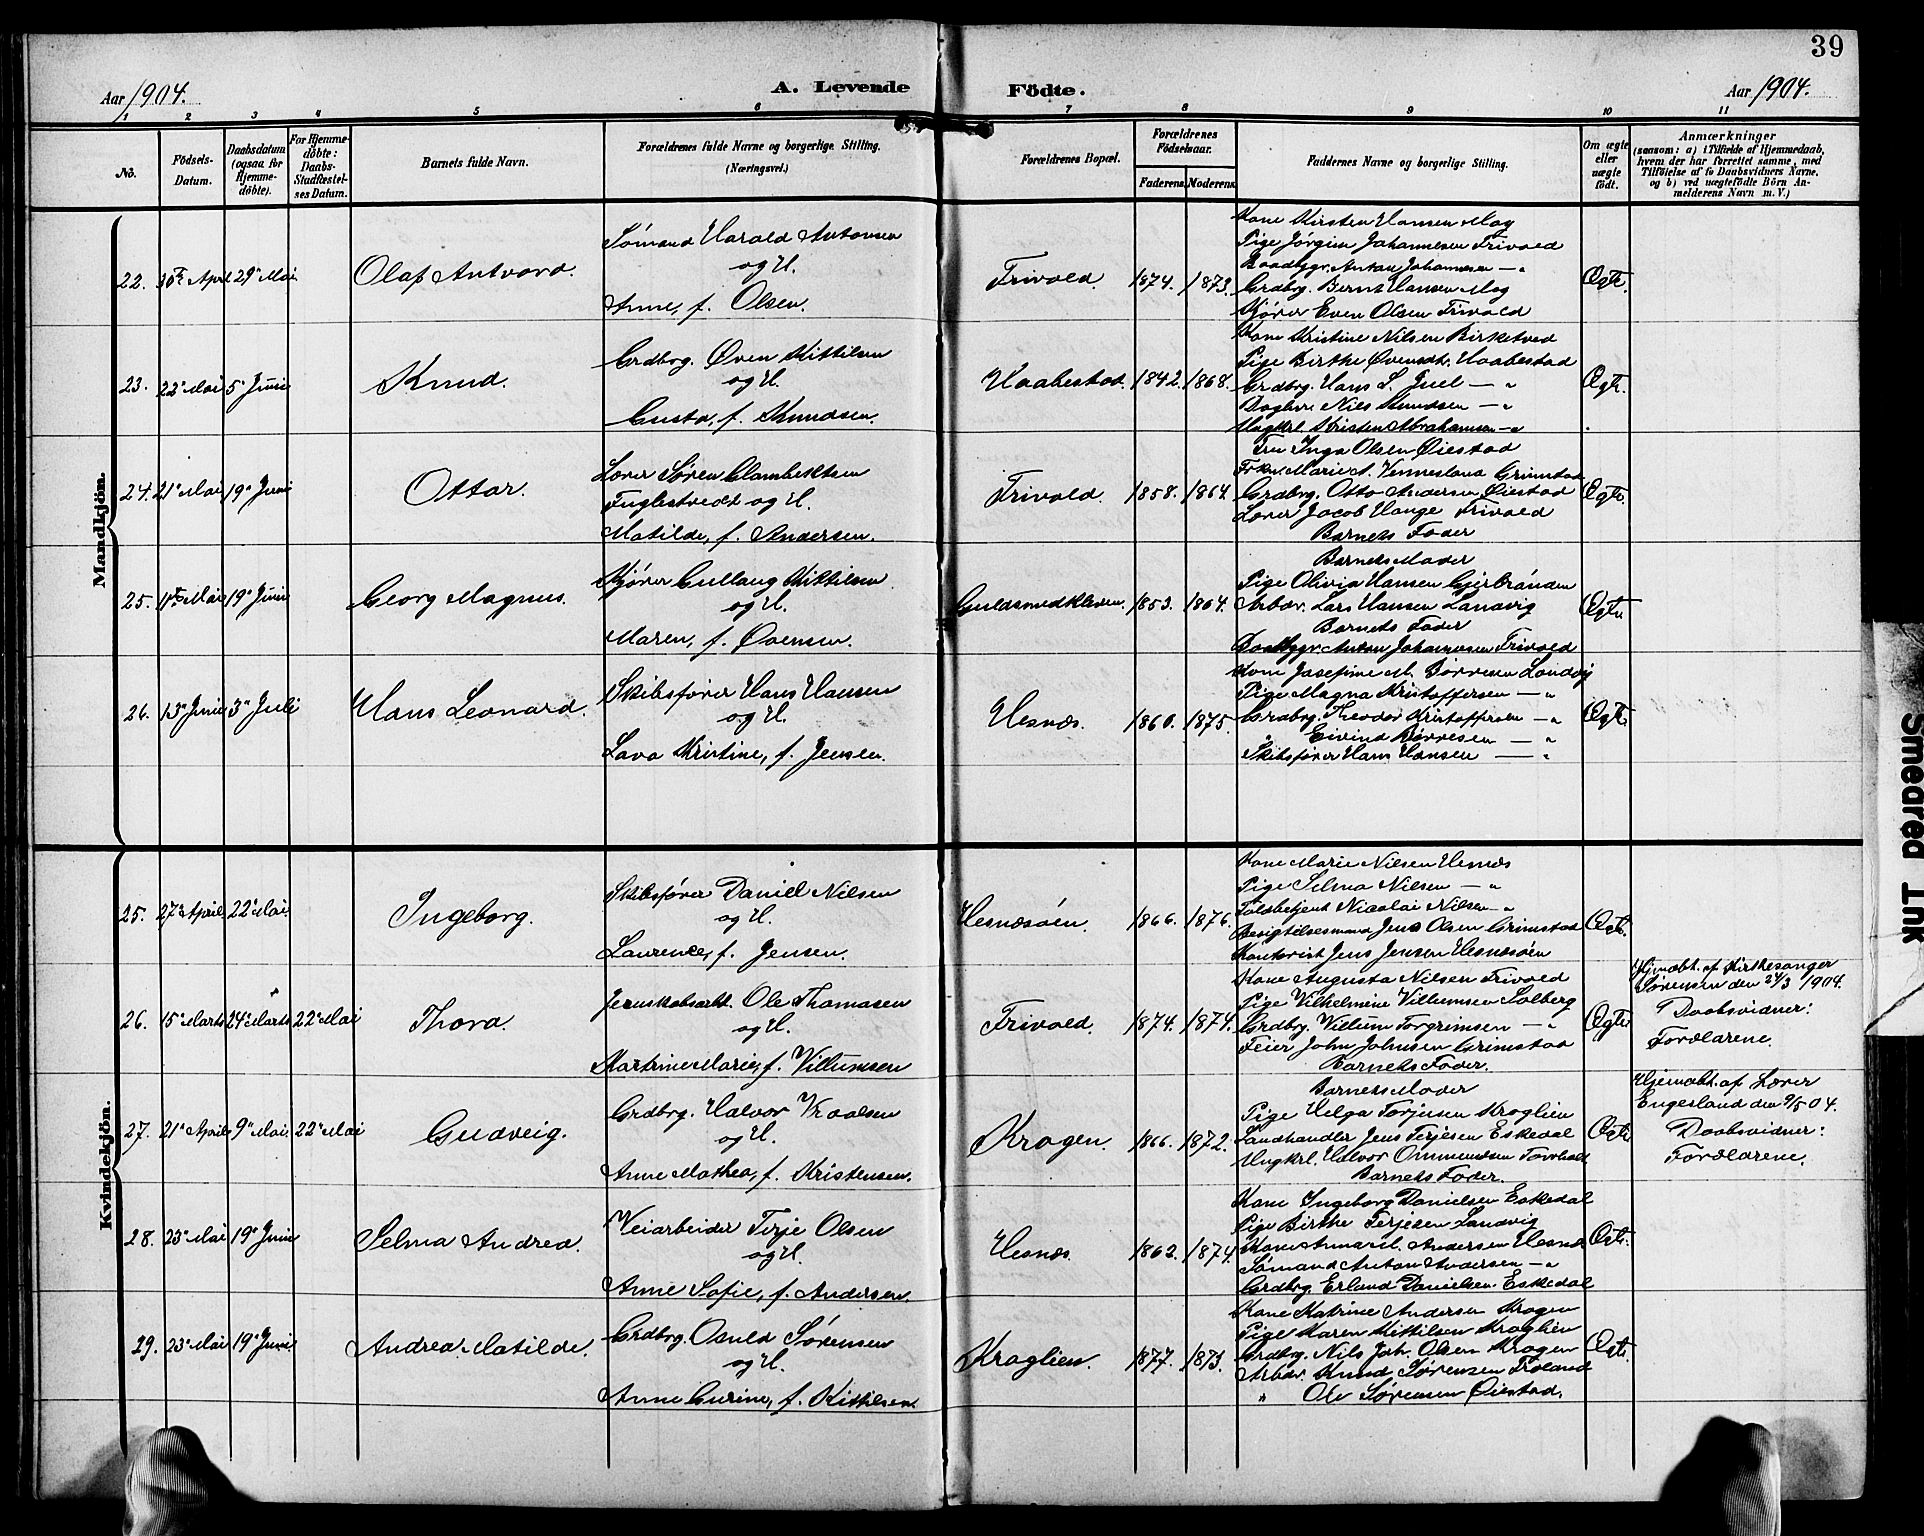 39
Aar 1904.
A. Levende Födte.
Aar 1904.
1 2 3 4 5 6 7 8 9 10 11
No.
Födsels-Datum.
Daabsdatum (ogsaa for Hjemmedöbte).
For Hjemmedöbte: Daabs-Stadfæstelses Datum.
Barnets fulde Navn.
Forældrenes fulde Navne og borgerlige Stilling. (Næringsvei.)
Forældrenes Bopæl.
Forældrenes Födselsaar.
Faderens.
Moderens.
Faddernes Navne og borgerlige Stilling.
Om ægte eller uægte födt.
Anmærkninger
(saasom: a) i Tilfælde af Hjemmedaab, hvem der har forrettet samme, med Tilföielse af to Daabsvidners Navne, og b) ved uægtefödte Börn Anmelderens Navn m. V.)
Mandkjön.
22. 30te April 29de Mai Olaf Antvord.
Sømand Harald Antonsen
og H.
Anne, f. Olsen.
Frivold. 1874. 1873.
Kone Kirsten Hansen Mog
Pige Jørgine Johannesen Frivold
Baadbygr. Anton Johannesen — "
Grdbrg. Bernt Hansen Mog
Kjører Even Olsen Frivold
Ægte.
23. 22de Mai 5te Juni Knud.
Grdbrg. Øven Kittilsen
og H.
Gusta, f. Knudsen.
Haabestad. 1842. 1868.
Kone Kristine Nilsen Birketved
Pige Birthe Øvensdtr. Haabestad
Grdbrg. Hans L. Juel — "
Nils Knudsen — "
Ungkrl. Kristen Abrahamsen — "
Ægte.
24. 21de Mai 19de Juni Ottar.
Lærer Søren Clambektsen
Fuglestvedt og H.
Matilde, f. Andersen.
Frivold. 1858. 1864.
Fru Inga Olsen Øiestad
Frkn. Marie A. Venneslana Grimstad
Grdbrg. Otto Andersen Øiestad
Lærer Jacob Hauge Frivold
Barnets Fader
Ægte.
25. 11te Mai 19de Juni Georg Magnus.
Kjører Gullaug Kittilsen
og H.
Maren, f. Øvensen.
Guldsmedkleven. 1853. 1864.
Barnets Moder
Pige Olivia Hansen Gjerbrånden
Arbdr. Lars Hansen Landvig
Barnets Fader
Baadbygr. Anton Johannesen Frivold
Ægte
26. 13de Juni 3de Juli Hans Leonard.
Skibsfører Hans Hansen
og H.
Lava Kristine, f. Jensen.
Hesnæs. 1860. 1875.
Kone Josefine M. Børresen Landvig
Pige Magna Kristoffersen — "
Grdbrg. Theodor Kristoffersen — "
" Eivind Børresen — "
Skibsfører Hans Hansen — "
Ægte
Kvindekjön.
25. 27de April 22de Mai Ingeborg.
Skibsfører Daniel Nilsen
og H.
Laurence, f. Jensen.
Hesnæsøen. 1866. 1876.
Kone Marie Nilsen Hesnæs
Pige Selma Nilsen — "
Toldbetjent Nicolai Nilsen — "
Besigtelsesmand Jens Olsen Grimstad
Kontorist Jens Jensen Hesnesøen
Ægte.
26. 15de Marts 24de Marts 22de Mai Thora.
Jernskabsarb. Ole Thomasen
og H.
Martine Marie, f. Villumsen
Frivold. 1874. 1874.
Kone Augusta Nilsen Frivold
Pige Vilhelmine Villumsen Solberg
Grdbrg. Villum Torgrimsen — "
Feier John Johnsen Grimstad
Barnets Fader.
Ægte
Hjmdbt. af Kirkesanger
Sørensen den 24/3 1904.
Daabsvidner:
Forældrene.
27. 21de April 9de Mai. 22de Mai Gudveig.
Grdbrg. Halvor Vraalsen
og H.
Anne Mathea, f. Kristensen.
Kragen. 1866. 1872.
Barnets Moder
Pige Helga Torjusen Kroglien
Landhandler Jens Terjesen Eskedal
Ungkrl. Halvor Ommundsen
Barnets Fader.
Ægte
Hjemdbt. af Lærer
Engesland den 9/5 04.
Daabsvidner:
Forældrene.
28. 23de Mai 19de Juni Selma Andrea.
Veiarbeider Terje Olsen
og H.
Anne Sofie, f. Andersen.
Hesnæs. 1862. 1874.
Kone Ingeborg Danielsen Eskedal
Pige Birthe Terjesen Landvig
Kone Annar El. Andersen Hesnæs
Sømand Anton Andersen — "
Grdbrg. Erland Danielsen Eskedal
Ægte.
29. 23de Mai 19de Juni Andrea Matilde.
Grdbrg. Osuld Sørensen
og H.
Anne Gurine, f. Kittilsen.
Kroglien. 1877. 1873.
Kone Katrine Andersen Kragen
Pige Karen Kittilsen Kroglien
Grdbrg. Nils Joh. Olsen Kragen
Arbdr. Knud Sørensen Froland
" Ole Sørensen Øiestad.
Ægte.
Smeared Ink